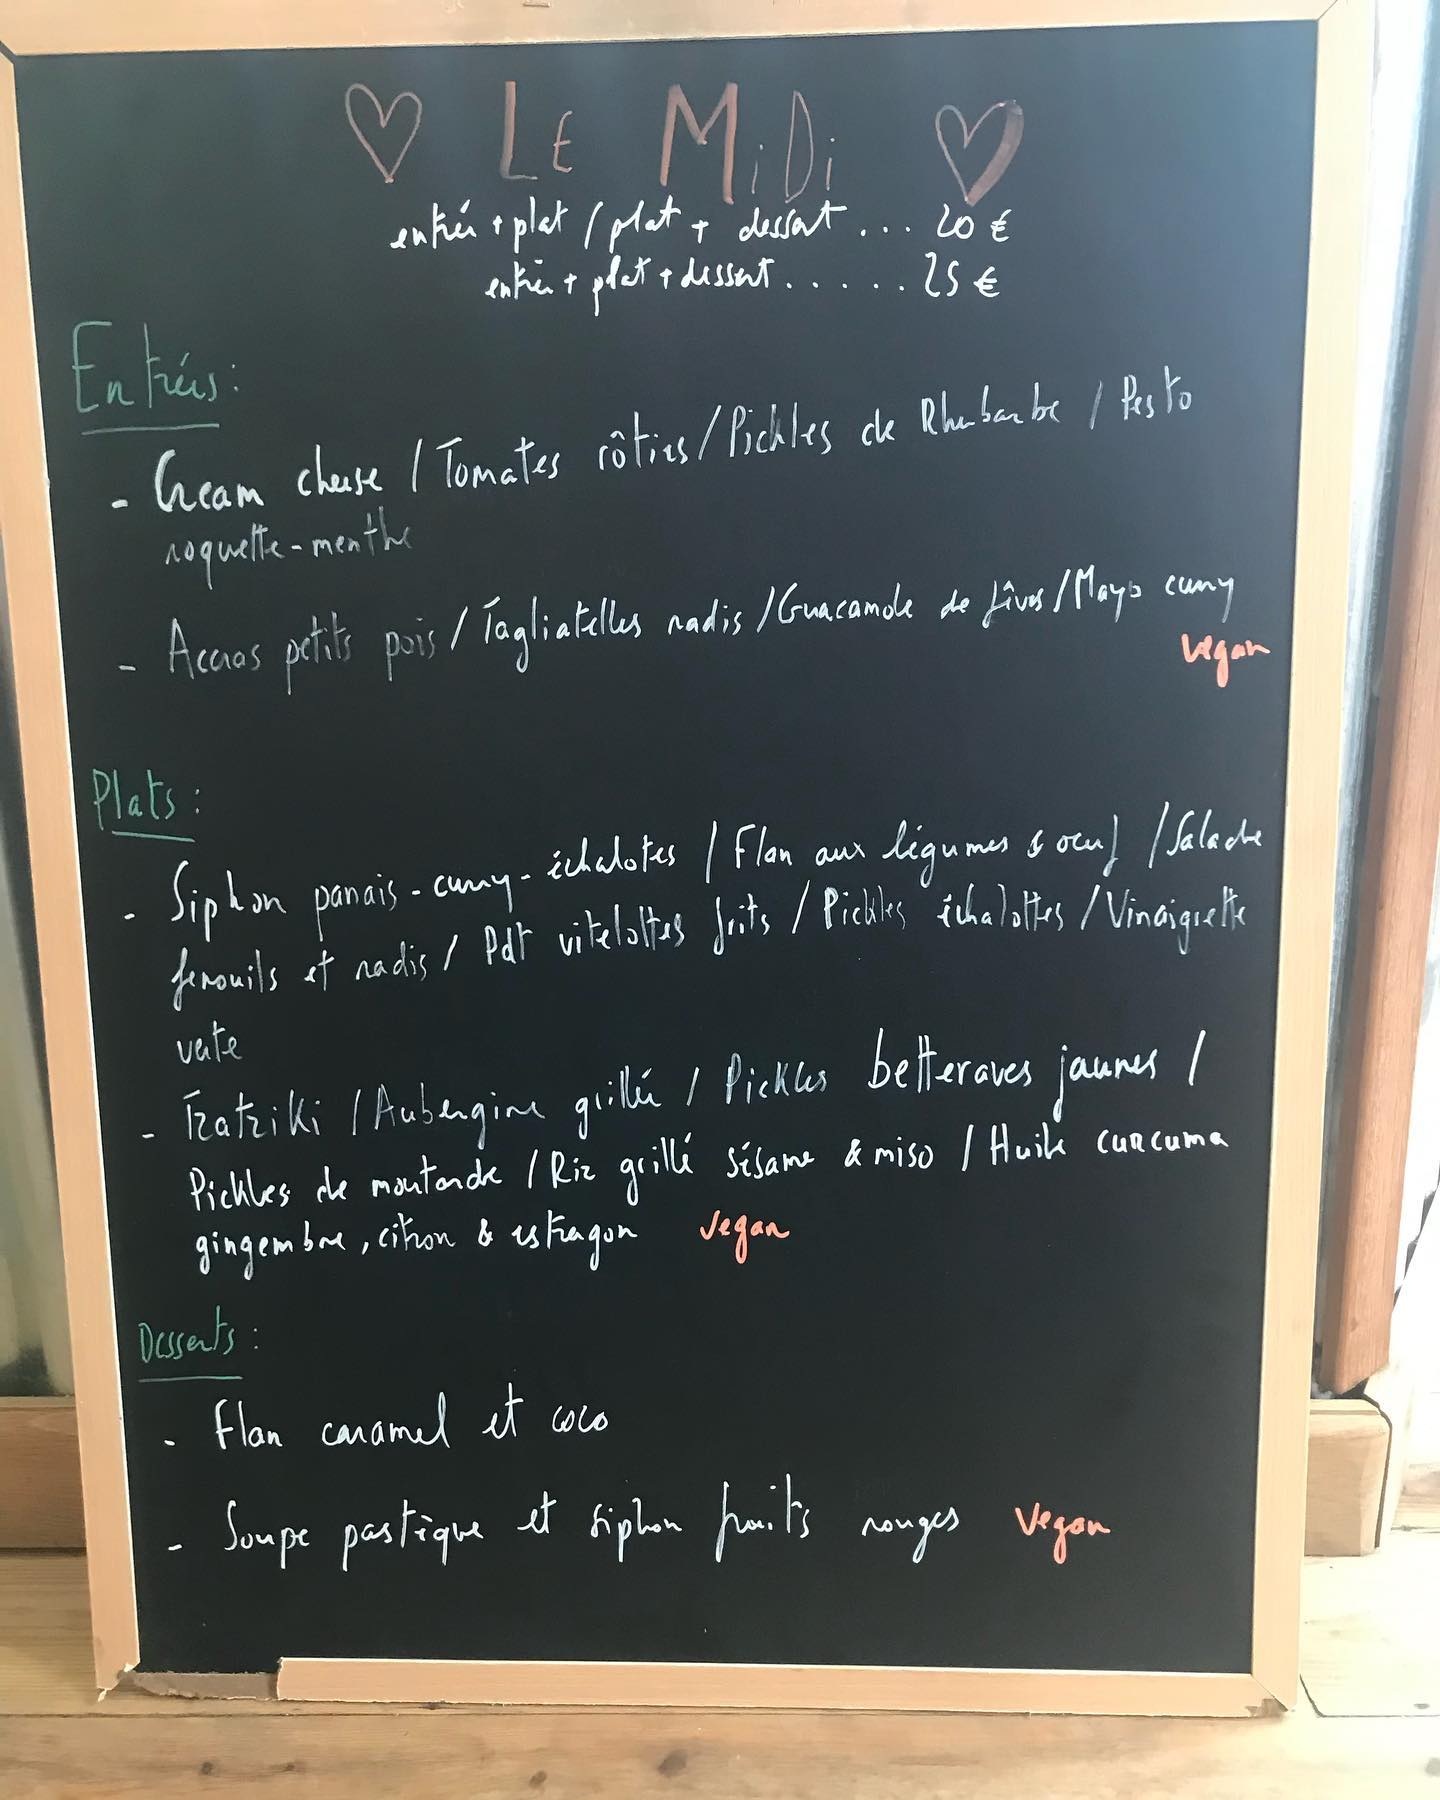 ♡ LE MiDi ♡
entrée + plat / plat + dessert ... 20 €
entrée + plat + dessert ...... 25 €
Entrées :
- Cream cheese / Tomates rôties / Pickles de Rhubarbe / Pesto
roquette - menthe
- Accras petits pois / Tagliatelles radis / Guacamole de fêves / Mayo curry
vegan
Plats :
- Siphon panais - curry - échalotes / Flan aux légumes & oeuf / Salade
fenouils et radis / Pdt vitelottes frits / Pickles échalottes / Vinaigrette
verte
- Tzatziki / Aubergine grillée / Pickles betteraves jaunes /
Pickles de moutarde / Riz grillé sésame & miso / Huile curcuma
gingembre, citron & estragon vegan
Desserts :
- Flan caramel et coco
- Soupe pastèque et siphon fruits rouges vegan